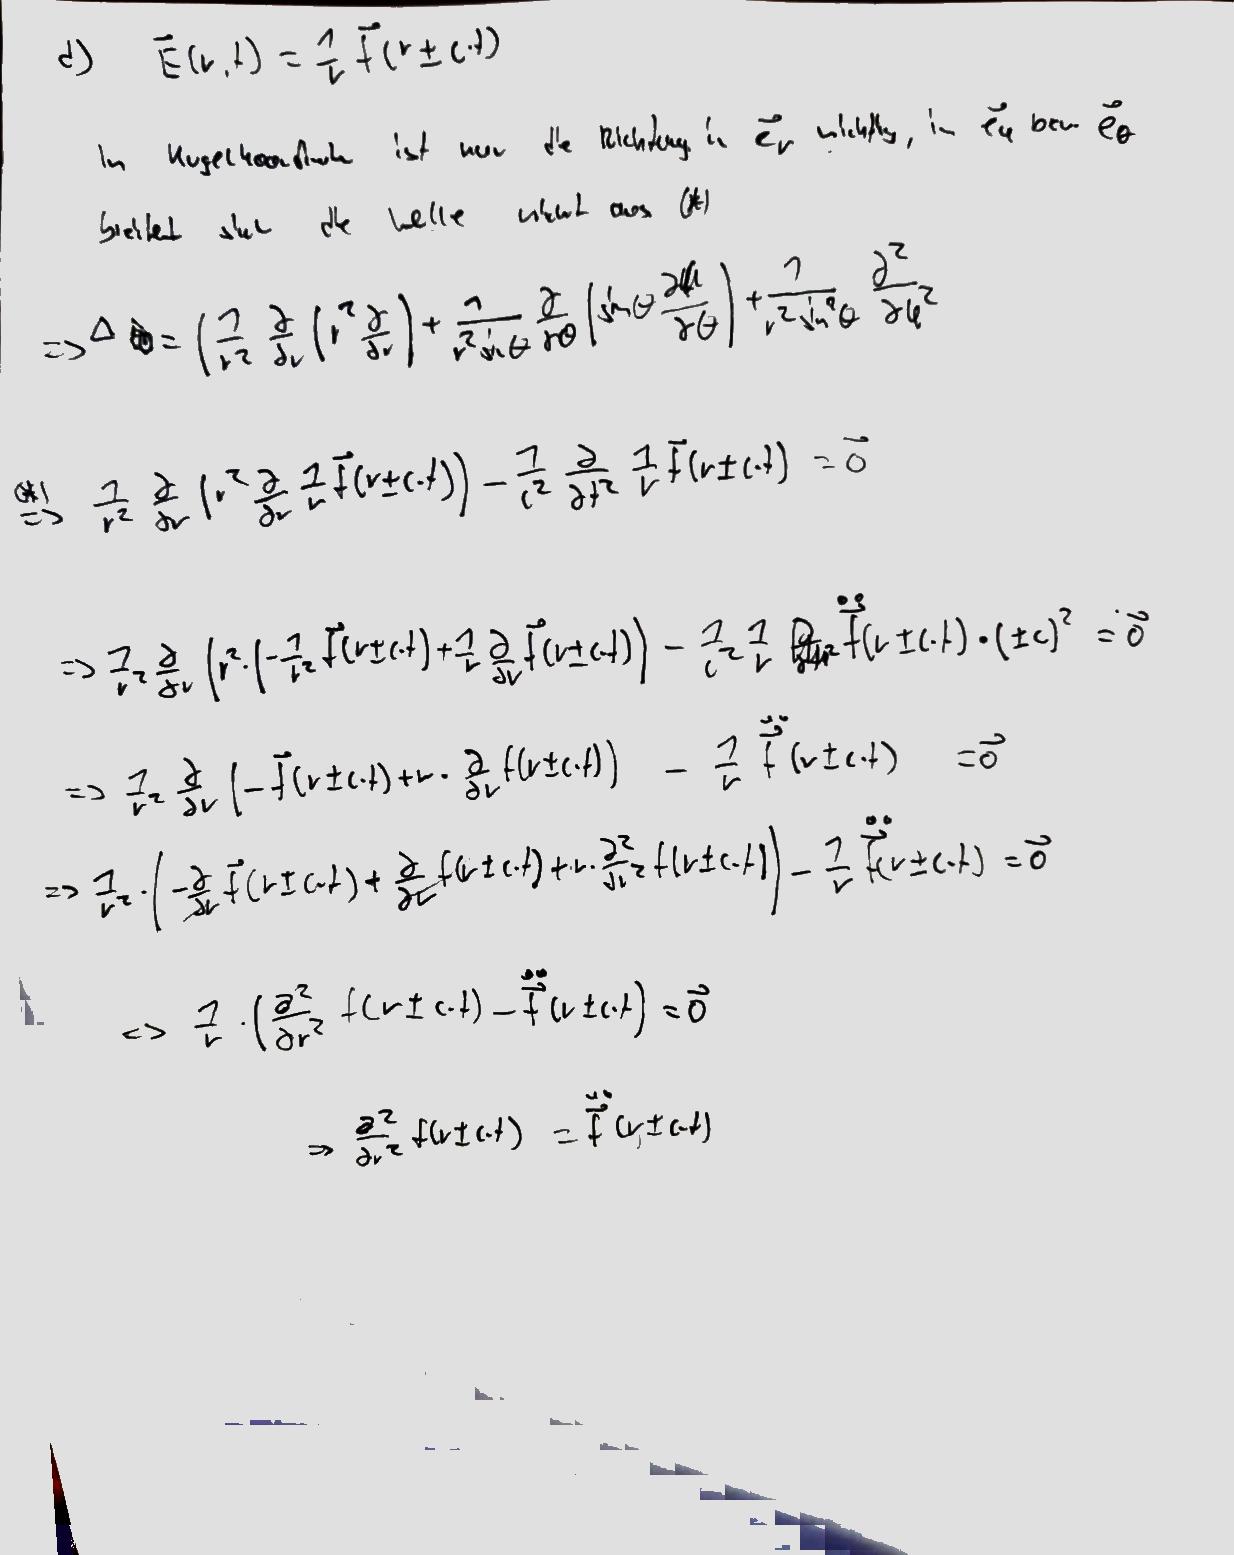 d) E⃗(r,t) = 1/r f⃗(r ± c·t)
In Kugelkoordinate ist nur die Richtung in e⃗_r wichtig, in e⃗_φ bzw. e⃗_θ
breitet sich die Welle nicht aus (*)
=> Δ = (1/r² ∂/∂r (r² ∂/∂r) + 1/(r² sin θ) ∂/∂θ (sin θ ∂/∂θ) + 1/(r² sin² θ) ∂²/∂φ²
(*) => 1/r² ∂/∂r (r² ∂/∂r 1/r f⃗(r±c·t)) − 1/c² ∂/∂t² 1/r f⃗(r±c·t) = 0⃗
=> 1/r² ∂/∂r (r²·(−1/r² f⃗(r±c·t) + 1/r ∂/∂r f⃗(r±c·t))) − 1/c² 1/r f⃗̈(r±c·t)·(±c)² = 0⃗
=> 1/r² ∂/∂r (−f⃗(r±c·t) + r·∂/∂r f(r±c·t)) − 1/r f⃗̈(r±c·t) = 0⃗
=> 1/r²·(−∂/∂r f⃗(r±c·t) + ∂/∂r f(r±c·t) + r·∂²/∂r² f(r±c·t)) − 1/r f⃗̈(r±c·t) = 0⃗
<=> 1/r·(∂²/∂r² f(r±c·t) − f⃗̈(r±c·t)) = 0⃗
=> ∂²/∂r² f(r±c·t) = f⃗̈(r±c·t)